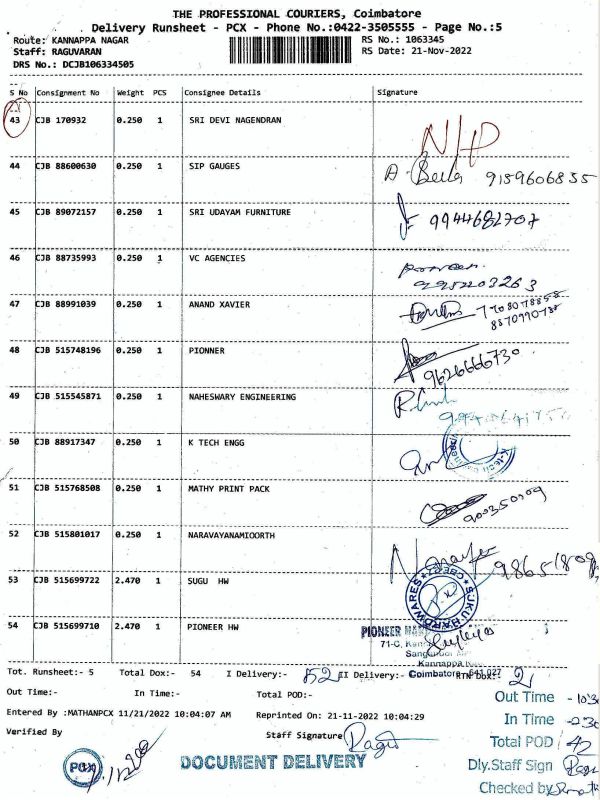 THE PROFESSIONAL COURIERS, Coimbatore
Delivery Runsheet - PCX - Phone No.:0422-3505555 - Page No.:5
Route: KANNAPPA NAGAR RS No.: 1063345
Staff: RAGUVARAN RS Date: 21-Nov-2022
DRS No.: DCJB106334505
S No Consignment No Weight PCS Consignee Details Signature
43 CJB 170932 0.250 1 SRI DEVI NAGENDRAN
44 CJB 88600630 0.250 1 SIP GAUGES 9159606855
45 CJB 89072157 0.250 1 SRI UDAYAM FURNITURE 9944682707
46 CJB 88735993 0.250 1 VC AGENCIES
47 CJB 88991039 0.250 1 ANAND XAVIER
48 CJB 515748196 0.250 1 PIONNER 9626666730
49 CJB 515545871 0.250 1 NAHESWARY ENGINEERING
50 CJB 88917347 0.250 1 K TECH ENGG
51 CJB 515768508 0.250 1 MATHY PRINT PACK
52 CJB 515801017 0.250 1 NARAVAYANAMIOORTH
53 CJB 515699722 2.470 1 SUGU HW
54 CJB 515699710 2.470 1 PIONEER HW
PIONEER
71-C,
Coimbatore
Tot. Runsheet:- 5 Total Dox:- 54 I Delivery:- 52 II Delivery:- RTN Dox: 2
Out Time:- In Time:- Total POD:-
Out Time
Entered By :MATHANPCX 11/21/2022 10:04:07 AM Reprinted On: 21-11-2022 10:04:29
In Time
Verified By Staff Signature
Total POD
PCX DOCUMENT DELIVERY
Dly.Staff Sign
Checked by